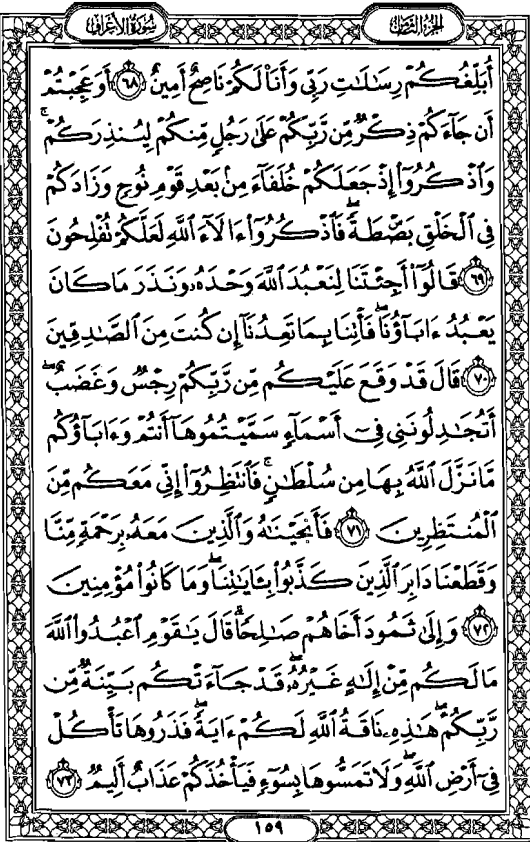 سُورَةُ الأَعْرَافِ
الجُزْءُ الثَّامِنُ
أُبَلِّغُكُمْ رِسَٰلَٰتِ رَبِّى وَأَنَا۠ لَكُمْ نَاصِحٌ أَمِينٌ ٦٨ أَوَعَجِبْتُمْ
أَن جَآءَكُمْ ذِكْرٌ مِّن رَّبِّكُمْ عَلَىٰ رَجُلٍ مِّنكُمْ لِيُنذِرَكُمْ ۚ
وَٱذْكُرُوٓا۟ إِذْ جَعَلَكُمْ خُلَفَآءَ مِنۢ بَعْدِ قَوْمِ نُوحٍ وَزَادَكُمْ
فِى ٱلْخَلْقِ بَصْۜطَةً ۖ فَٱذْكُرُوٓا۟ ءَالَآءَ ٱللَّهِ لَعَلَّكُمْ تُفْلِحُونَ
٦٩ قَالُوٓا۟ أَجِئْتَنَا لِنَعْبُدَ ٱللَّهَ وَحْدَهُۥ وَنَذَرَ مَا كَانَ
يَعْبُدُ ءَابَآؤُنَا ۖ فَأْتِنَا بِمَا تَعِدُنَآ إِن كُنتَ مِنَ ٱلصَّٰدِقِينَ
٧٠ قَالَ قَدْ وَقَعَ عَلَيْكُم مِّن رَّبِّكُمْ رِجْسٌ وَغَضَبٌ ۖ
أَتُجَٰدِلُونَنِى فِىٓ أَسْمَآءٍ سَمَّيْتُمُوهَآ أَنتُمْ وَءَابَآؤُكُم
مَّا نَزَّلَ ٱللَّهُ بِهَا مِن سُلْطَٰنٍ ۚ فَٱنتَظِرُوٓا۟ إِنِّى مَعَكُم مِّنَ
ٱلْمُنتَظِرِينَ ٧١ فَأَنجَيْنَٰهُ وَٱلَّذِينَ مَعَهُۥ بِرَحْمَةٍ مِّنَّا
وَقَطَعْنَا دَابِرَ ٱلَّذِينَ كَذَّبُوا۟ بِـَٔايَٰتِنَا ۖ وَمَا كَانُوا۟ مُؤْمِنِينَ
٧٢ وَإِلَىٰ ثَمُودَ أَخَاهُمْ صَٰلِحًا ۗ قَالَ يَٰقَوْمِ ٱعْبُدُوا۟ ٱللَّهَ
مَا لَكُم مِّنْ إِلَٰهٍ غَيْرُهُۥ ۖ قَدْ جَآءَتْكُم بَيِّنَةٌ مِّن
رَّبِّكُمْ ۖ هَٰذِهِۦ نَاقَةُ ٱللَّهِ لَكُمْ ءَايَةً ۖ فَذَرُوهَا تَأْكُلْ
فِىٓ أَرْضِ ٱللَّهِ ۖ وَلَا تَمَسُّوهَا بِسُوٓءٍ فَيَأْخُذَكُمْ عَذَابٌ أَلِيمٌ ٧٣
١٥٩